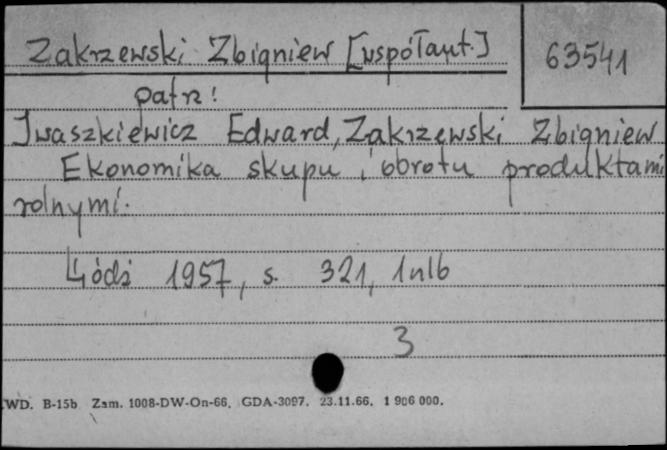 Zakrzewski Zbigniew [współaut.]
63541
patrz:
Iwaszkiewicz Edward, Zakrzewski Zbigniew
Ekonomika skupu i obrotu produktami
rolnymi.
Łódź 1957, s. 321, 1nlb
3
WD. B-15b Zam. 1008-DW-On-66. GDA-3097. 23.11.66. 1 906 000.